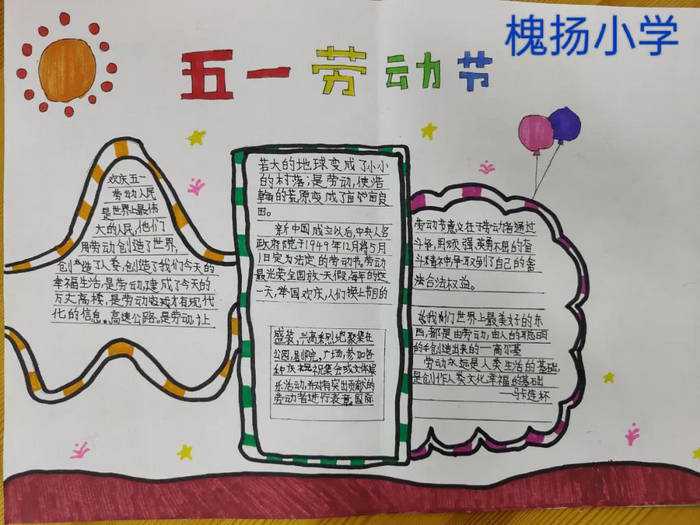 槐扬小学
五一劳动节
欢庆五一
劳动人民
是世界上最伟
大的人民,他们
用劳动创造了世界,
创造了人类,创造了我们今天的
幸福生活,是劳动建成了今天的
万丈高楼,是劳动
化的信息,高速公路,是劳动让
若大的地球变成了小小
的村落,是劳动,使浩
瀚的荒原变成了亩亩良
田。
新中国成立以后,中央人民
政府院于1949年12月将5月
1日定为法定的劳动节,劳动
最光荣全国放一天假,每年的这
一天,举国欢庆,人们换上节日的
盛装,兴高采烈地聚集在
公园,剧院,广场,参加各
种庆祝集会或文体娱
乐活动,并对有突出贡献的
劳动者进行表
劳动节意义在于劳动者通过
斗争,用顽强,英勇不屈的奋
斗精神争取到了自己的
法合法权益。
说我们世界上最美好的东
西,都是由劳动,由人的聪明
的手创造出来的一高尔基
劳动永远是人类生活的基础,
是创作人类文化幸福的基础
—马卡连柯